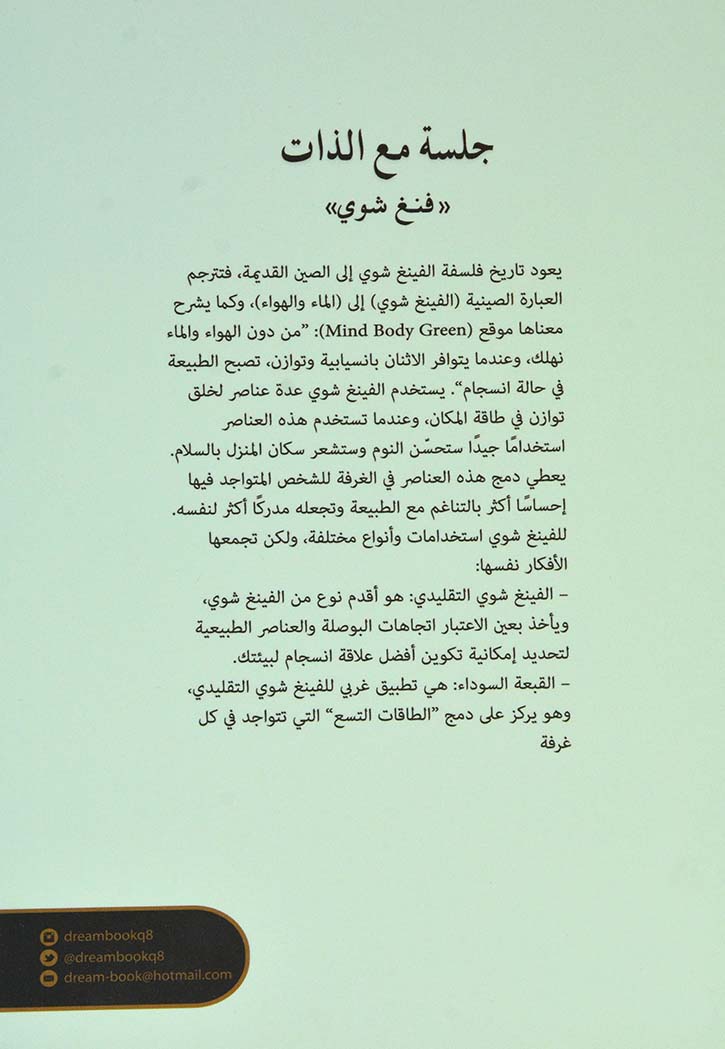 جلسة مع الذات
«فنغ شوي»
يعود تاريخ فلسفة الفينغ شوي إلى الصين القديمة، فتترجم
العبارة الصينية (الفينغ شوي) إلى (الماء والهواء)، وكما يشرح
معناها موقع (Mind Body Green): ”من دون الهواء والماء
نهلك، وعندما يتوافر الاثنان بانسيابية وتوازن، تصبح الطبيعة
في حالة انسجام“. يستخدم الفينغ شوي عدة عناصر لخلق
توازن في طاقة المكان، وعندما تستخدم هذه العناصر
استخدامًا جيدًا ستحسّن النوم وستشعر سكان المنزل بالسلام.
يعطي دمج هذه العناصر في الغرفة للشخص المتواجد فيها
إحساسًا أكثر بالتناغم مع الطبيعة وتجعله مدركًا أكثر لنفسه.
للفينغ شوي استخدامات وأنواع مختلفة، ولكن تجمعها
الأفكار نفسها:
– الفينغ شوي التقليدي: هو أقدم نوع من الفينغ شوي،
ويأخذ بعين الاعتبار اتجاهات البوصلة والعناصر الطبيعية
لتحديد إمكانية تكوين أفضل علاقة انسجام لبيئتك.
– القبعة السوداء: هي تطبيق غربي للفينغ شوي التقليدي،
وهو يركز على دمج ”الطاقات التسع“ التي تتواجد في كل
غرفة
dreambookq8
@dreambookq8
dream-book@hotmail.com